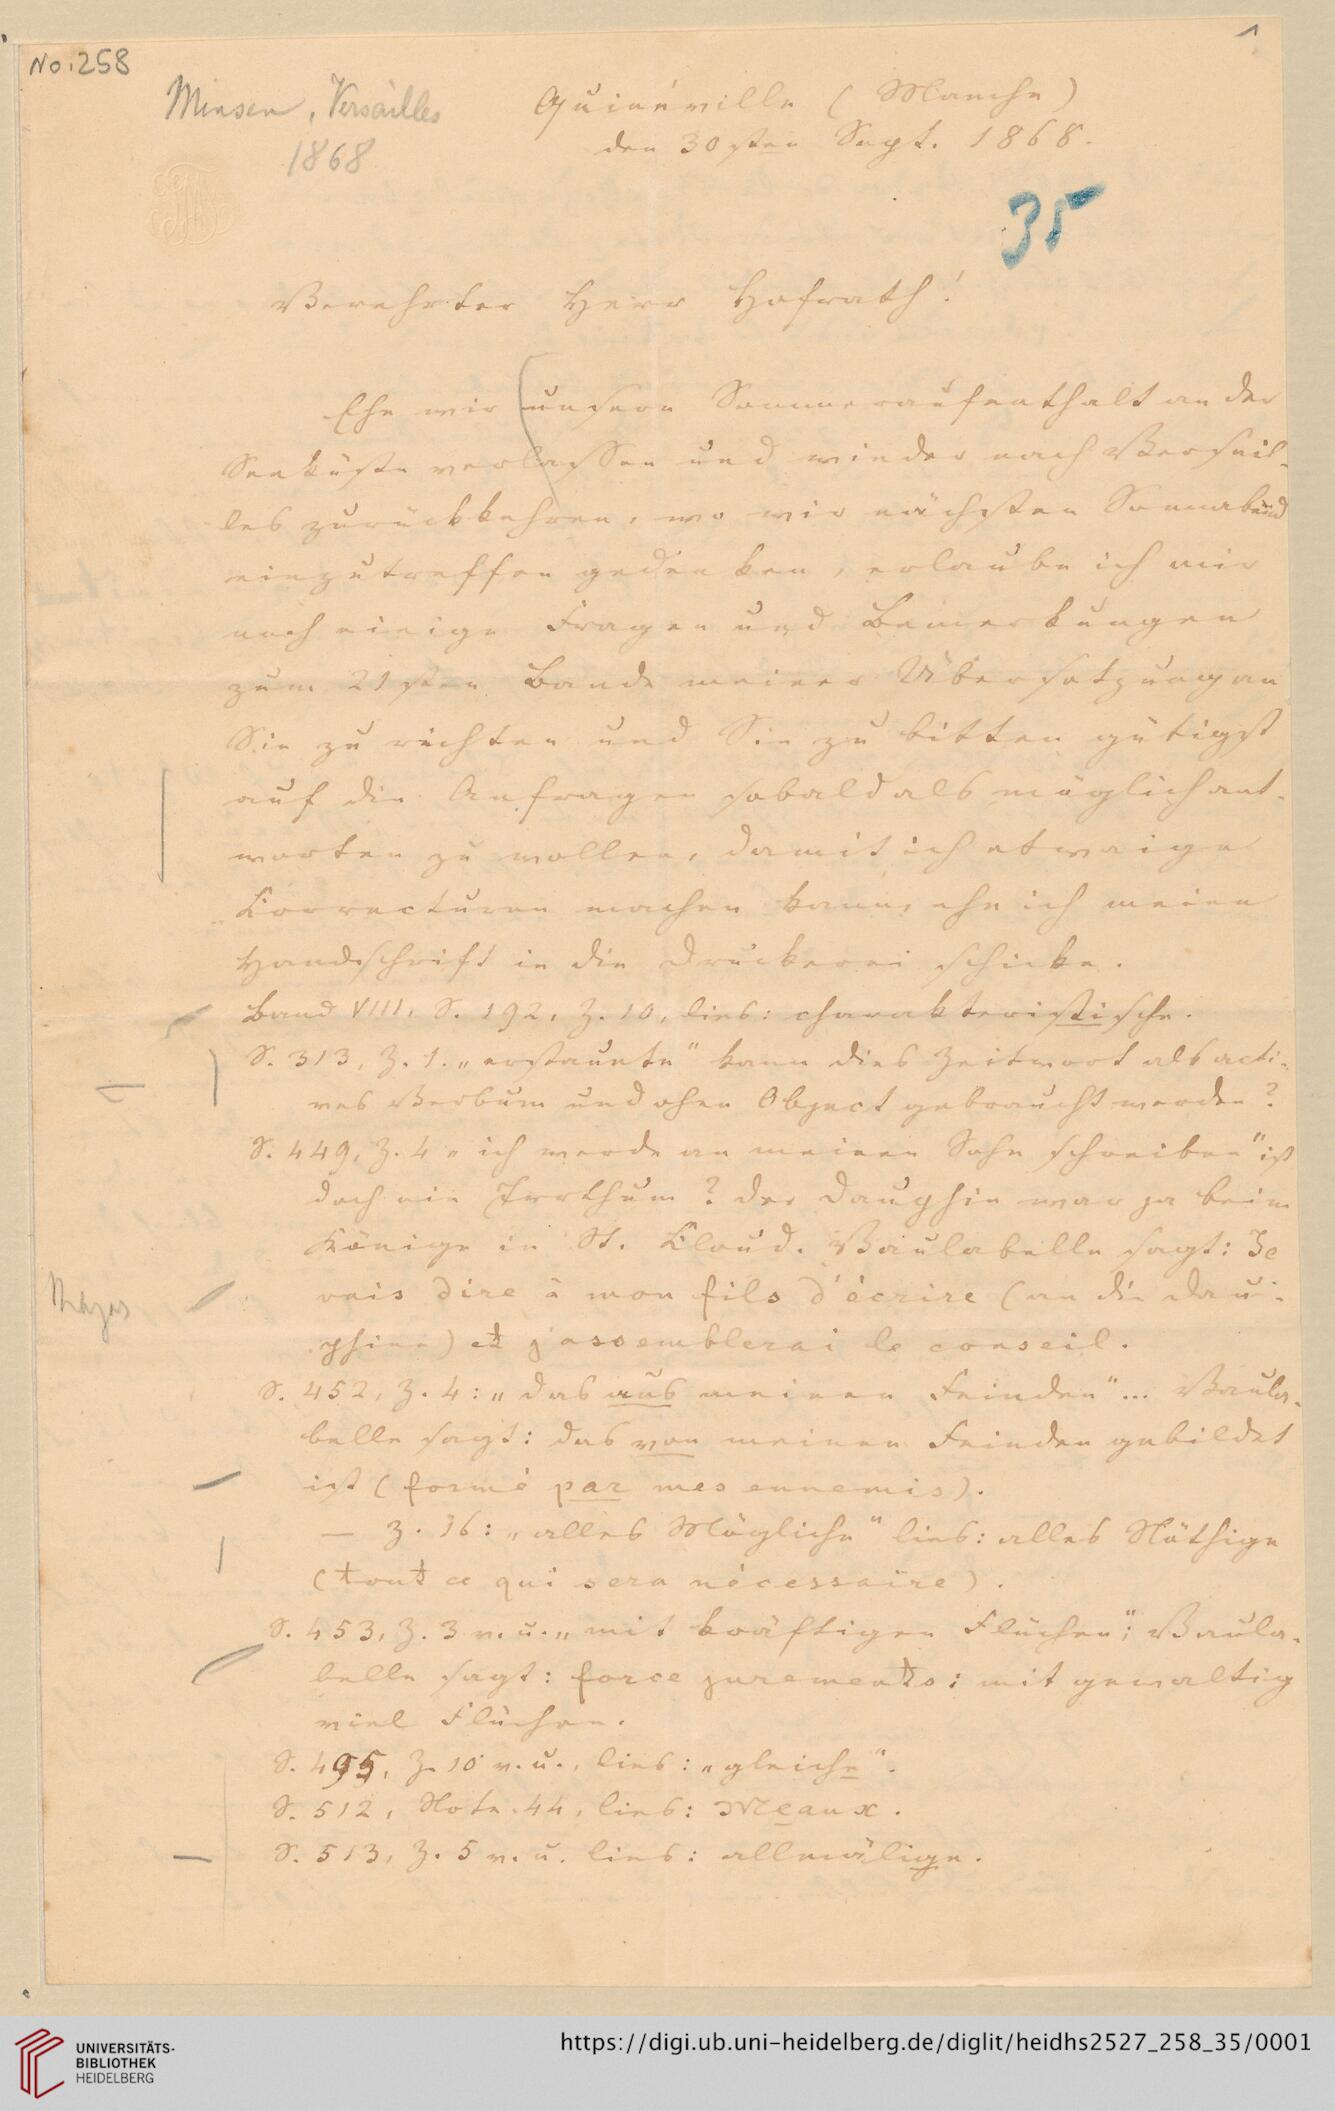 No: 258
1
Minsen, Versailles
1868
Quinéville (Manche)
den 30sten Sept. 1868.
35
Verehrter Herr Hofrath!
Ehe wir unsern Sommeraufenthalt an der
Seeküste verlassen und wieder nach Versail-
les zurückkehren, wo wir nächsten Sonnabend
einzutreffen gedenken, erlaube ich mir
noch einige Fragen und Bemerkungen
zum 21sten Bande meiner Übersetzung an
Sie zu richten und Sie zu bitten gütigst
auf die Anfragen sobald als möglich ant-
worten zu wollen, damit ich etwaige
Correcturen machen kann, ehe ich meine
Handschrift in die Druckerei schicke.
Band VIII, S. 192, Z. 10, lies: charakteristische.
S. 313, Z. 1. „erstaunte" kann dies Zeitwort als acti-
ves Verbum und ohne Object gebraucht werden?
S. 449, Z. 4 „ich werde an meinen Sohn schreiben" ist
doch ein Irrthum? Der Dauphin war ja beim
Könige in St. Cloud. Vaulabelle sagt: Je
vais dire à mon fils d'écrire (an die Dau-
phine) et j'assemblerai le conseil.
S. 452, Z. 4: „das aus meinen Feinden"... Vaula-
belle sagt: das von meinen Feinden gebildet
ist (formé par mes ennemis).
— Z. 16: „alles Mögliche" lies: alles Nöthige
(tout ce qui sera nécessaire).
S. 453, Z. 3 v. u. „mit kräftigen Flüchen"; Vaula-
belle sagt: force jurements: mit gewaltig
viel Flüchen.
S. 495, Z. 10 v. u., lies: „gleiche".
S. 512, Note 44, lies: Meaux.
S. 513, Z. 5 v. u. lies: allmälige.
UNIVERSITÄTS-
BIBLIOTHEK
HEIDELBERG
https://digi.ub.uni-heidelberg.de/diglit/heidhs2527_258_35/0001